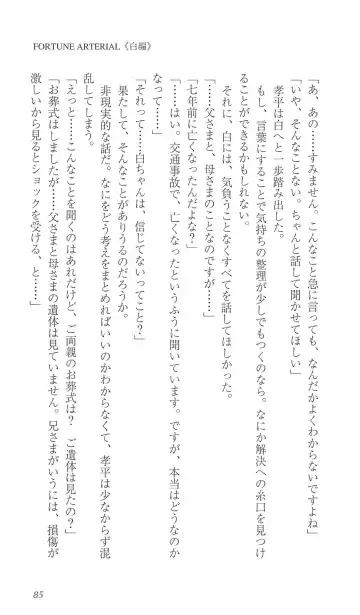 FORTUNE ARTERIAL《白編》
「あ、あの……すみません。こんなこと急に言っても、なんだかよくわからないですよね」
「いや、そんなことない。ちゃんと話して聞かせてほしい」
孝平は白へと一歩踏み出した。
もし、言葉にすることで気持ちの整理が少しでもつくのなら。なにか解決への糸口を見つけ
ることができるかもしれない。
それに、白には、気負うことなくすべてを話してほしかった。
「……父さまと、母さまのことなのですが……」
「七年前に亡くなったんだよな？」
「……はい。交通事故で、亡くなったというふうに聞いています。ですが、本当はどうなのか
なって……」
「それって……白ちゃんは、信じてないってこと？」
果たして、そんなことがありうるのだろうか。
非現実的な話だ。なにをどう考えをまとめればいいのかわからなくて、孝平は少なからず混
乱してしまう。
「えっと……こんなことを聞くのはあれだけど、ご両親のお葬式は？　ご遺体は見たの？」
「お葬式はしましたが……父さまと母さまの遺体は見ていません。兄さまがいうには、損傷が
激しいから見るとショックを受ける、と……」
85